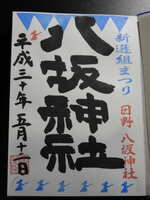 新選組まつり
日野 八坂神社
八坂神社
平成三十年五月十二日